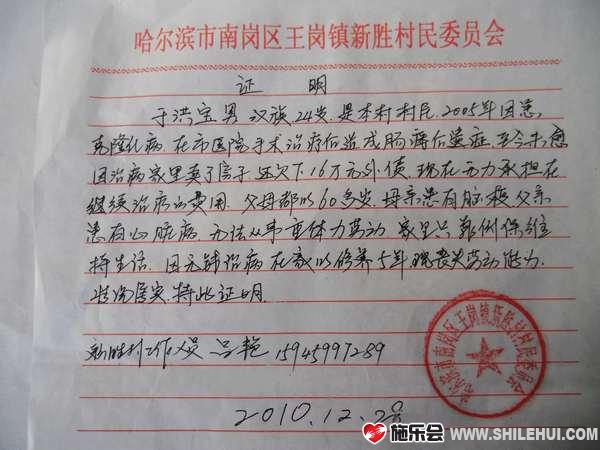 哈尔滨市南岗区王岗镇新胜村民委员会
证 明
于洪宝男 汉族 24岁 是本村村民 2005年因患
克隆化病 在市医院手术治疗后造成肠瘘后遗症 至今未愈
因治病家里卖了房子 还欠下16万元外债 现在无力承担在
继续治病的费用 父母都以60多岁 母亲患有脑梗 父亲
患有心脏病 无法从事重体力劳动 家里只靠 低保维
持生活 因无钱治病 在家以修养5年 现丧失劳动能力
情况属实 特此证明
新胜村工作人员 吕艳 15945997289
哈尔滨市南岗区王岗镇新胜村民委员会
2010.12.28
施乐会 WWW.SHILEHUI.COM